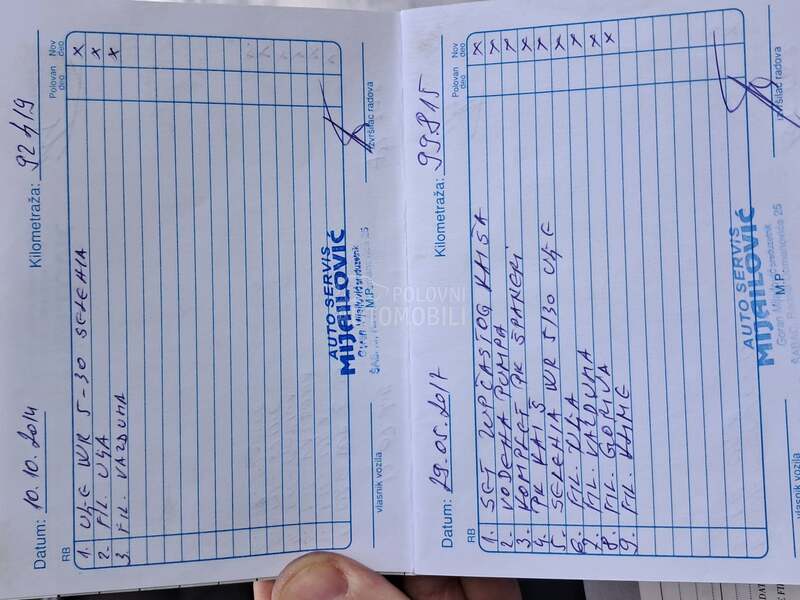 Datum: 10.10.2014 Kilometraža: 92419
RB Polovan deo Nov deo
1. UЉE WR 5-30 SELENIA x
2. FIL. UЉA x
3. FIL. VAZDUHA x
AUTO SERVIS
MIJAILOVIĆ
M.P.
vlasnik vozila
izvršilac radova
Datum: 29.05.2017 Kilometraža: 99.815
RB Polovan deo Nov deo
1. SET ZUPČASTOG KAIŠA x
2. VODENA PUMPA x
3. KOMPLET PK ŠPANERI x
4. PK KAIŠ x
5. SELENIA WR 5/30 UЉE x
6. FIL. UЉA x
7. FIL. VAZDUHA x
8. FIL. GORIVA x
9. FIL. KLIME x
AUTO SERVIS
MIJAILOVIĆ
M.P.
vlasnik vozila
izvršilac radova
POLOVNI
AUTOMOBILI